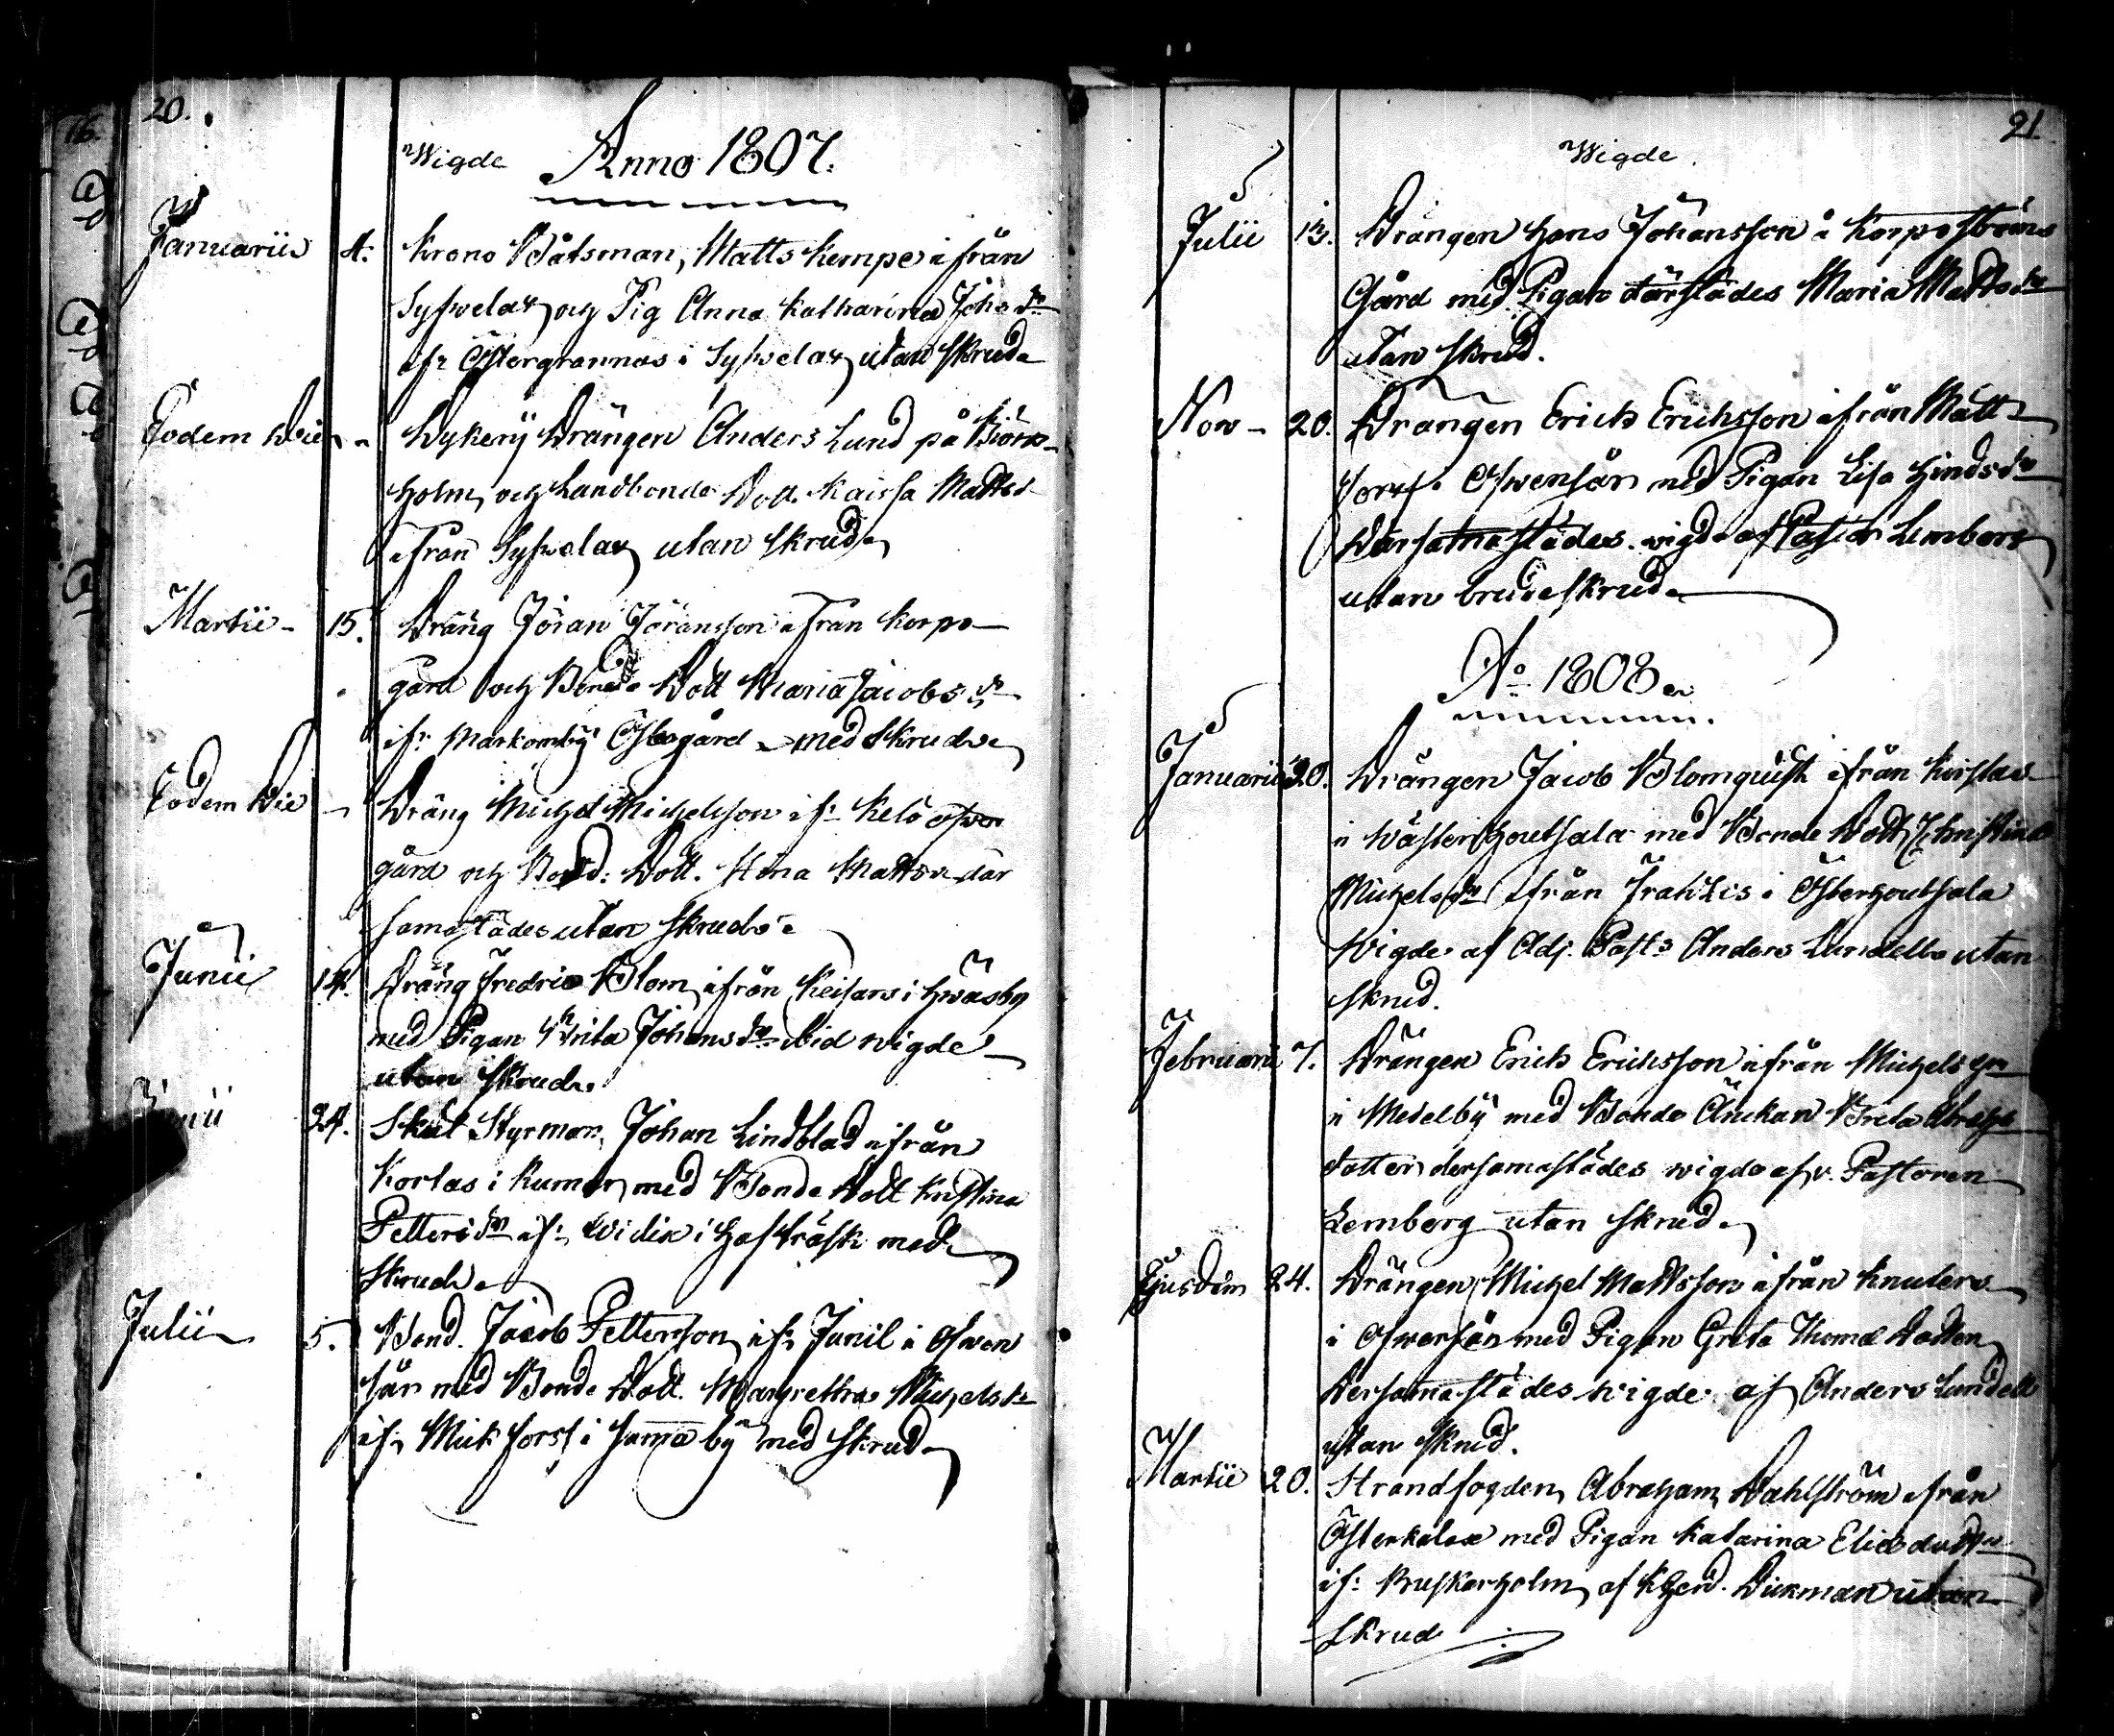 20.
16.
Wigde Anno 1807.
Januarii 4. Krono Båtsman, Matts Kempe ifrån
Syfvelax och Pig Anna Katharina Johs dr
ifr Östergrannas i Syfvelax utan skrud
Eodem Die - Dykerij Drängen Anders Lund på Biörk-
holm, och Landbonde Dott. Kaissa Mattsd
ifrån Syfvelax utan skrud
Martii - 15. Dräng Jöran Jöransson ifrån Korpo
gård och Bonde Dott Maria Jacobs dr
ifr Markomby Östergård med skrud
Eodem Die - Dräng Michel Michelsson ifr Kelö öfver
gård och Bond: Dott. Stina Matts där
samastädes utan skrud
Junii 14. Dräng Fredric Blom ifrån Keisars i
med Pigan Brita Johans dr ibid wigde
utan skrud.
Junii 24. Skut Styrman, Johan Lindblad ifrån
Korlas i Rumar med Bonde Dott Kristina
Petters dr ifr i Hafträsk med
skrud
Julii 5. Bond. Jacob Pettersson ifr Junil i Ofven
sår med Bonde Dott. Margretha Michelsdr
ifr Mickfors i samma by med skrud
21.
Wigde.
Julii 13. Drängen Hans Johansson å Korpoströms
Gård med Pigan därstädes Maria Mattsdr
utan skrud.
Nov - 20. Drängen Erich Erichsson ifrån Matt
i Ofvensår med Pigan Lisa Hindsdr
därsamastädes. wigde af Pastor Lemberg
utan brudeskrud
Ao 1808
Januarii 20. Drängen Jacob Blomquist ifrån
i Wästerhoutsala med Bonde Dott Christina
Michelsdr ifrån i Österhoutsala
wigde af Adj. Past: Anders Lundell utan
skrud.
Februarii 7. Drängen Erich Erichsson ifrån Michels
i Medelby med Bonde Änckan Brita Abrahs
dotter dersamastädes wigde af v. Pastoren
Lemberg utan skrud
Ejusdem 24. Drängen Michel Mattsson ifrån Knuters
i Ofvensår med Pigan Greta Thomæ Dotter
dersamastädes wigde af Anders Lundell
utan skrud.
Martii 20. Strandfogden, Abraham Dahlström ifrån
Österkalax med Pigan Katarina Eliædottr
ifr Buskarholm af Dickman utan
skrud